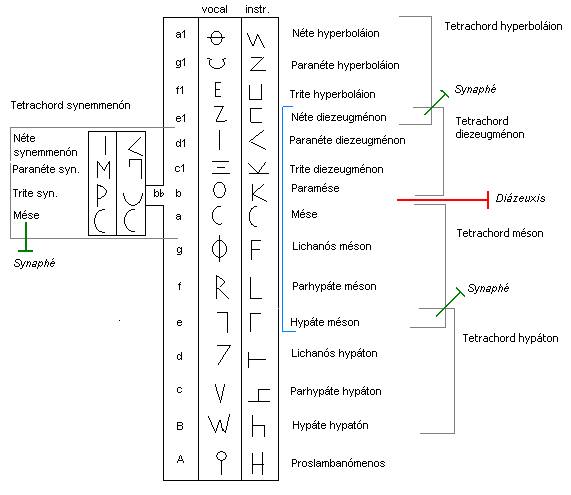 vocal instr.
a1 Néte hyperboláion
g1 Paranéte hyperboláion
f1 E Trite hyperboláion
e1 Z Néte diezeugménon
d1 I < Paranéte diezeugménon
c1 Ξ Trite diezeugménon
b O K Paramése
a C C Mése
g Φ F Lichanós méson
f R L Parhypáte méson
e Γ Hypáte méson
d Lichanós hypáton
c V Parhypáte hypáton
B W h Hypáte hypatón
A H Proslambanómenos
Tetrachord synemmenón
Néte
synemmenón I
Paranéte syn. M
Trite syn. P bb
Mése C C
Synaphé
Tetrachord hyperboláion
Synaphé
Tetrachord
diezeugménon
Diázeuxis
Tetrachord méson
Synaphé
Tetrachord hypáton